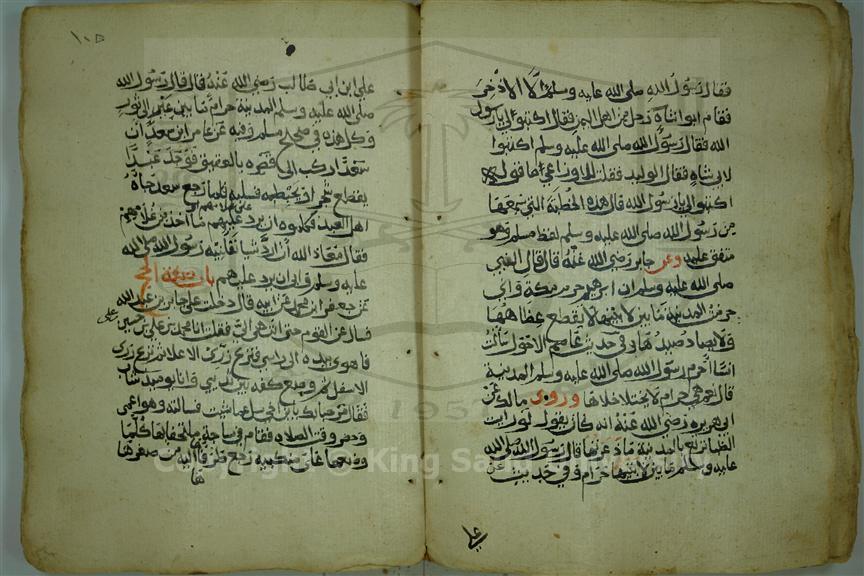 فقال رسول الله صلى الله عليه وسلم الا الاذخر
فقام ابو شاة رجل من اهل اليمن فقال اكتبوا لي يا رسول
الله فقال رسول الله صلى الله عليه وسلم اكتبوا
لابي شاه فقال الوليد فقلت للاوزاعي ما قوله
اكتبوا لي يا رسول الله قال هذه الخطبة التي سمعها
من رسول الله صلى الله عليه وسلم لفظ مسلم وهو
متفق عليه وعن جابر رضي الله عنه قال قال النبي
صلى الله عليه وسلم ان ابرهيم حرم مكة واني
حرمت المدينة ما بين لابتيها لا يقطع عضاهها
ولا يصاد صيدها وفي حديث عاصم الاحول سألت
انسا أحرم رسول الله صلى الله عليه وسلم المدينة
قال نعم هي حرام لا يختلا خلاها وروى مالك عن
ابي هريره رضي الله عنه انه كان يقول لو رايت
الظبا ترتع بالمدينة ما ذعرتها قال رسول الله صلى الله
عليه وسلم ما بين لابتيها حرام وفي حديث عن
١٠٥
علي ابن ابي طالب رضي الله عنه قال قال رسول الله
صلى الله عليه وسلم المدينة حرام ما بين عير الى ثور
وكل هذه في صحيح مسلم وفيه عن عامر ابن سعد ان
سعدا ركب الى قصره بالعقيق فوجد عبدا
يقطع شجرا او يخبطه فسلبه فلما رجع سعد جاه
اهل العبد فكلموه ان يرد عليهم ما اخذ من غلامهم
فقال معاذ الله أن ارد شيا نفلنيه رسول الله صلى الله
عليه وسلم وابى ان يرد عليهم باب صفة الحج
عن جعفر ابن محمد عن ابيه قال دخلت على جابر بن عبد الله
فسال عن القوم حتى انتهى الي فقلت انا محمد بن علي بن حسين
فاهوى بيده الى راسي فنزع زري الاعلا ثم نزع زري
الاسفل ثم وضع كفه بين ثديي وانا يوميذ شاب
فقال مرحبا بك يا ابن اخي سل عما شيت فسالته وهو اعمى
وحضر وقت الصلاه فقام في نساجة ملتحفا بها كلما
وضعها على منكبيه رجع طرفاها اليه من صغرها
Copyright © King Saud
1957